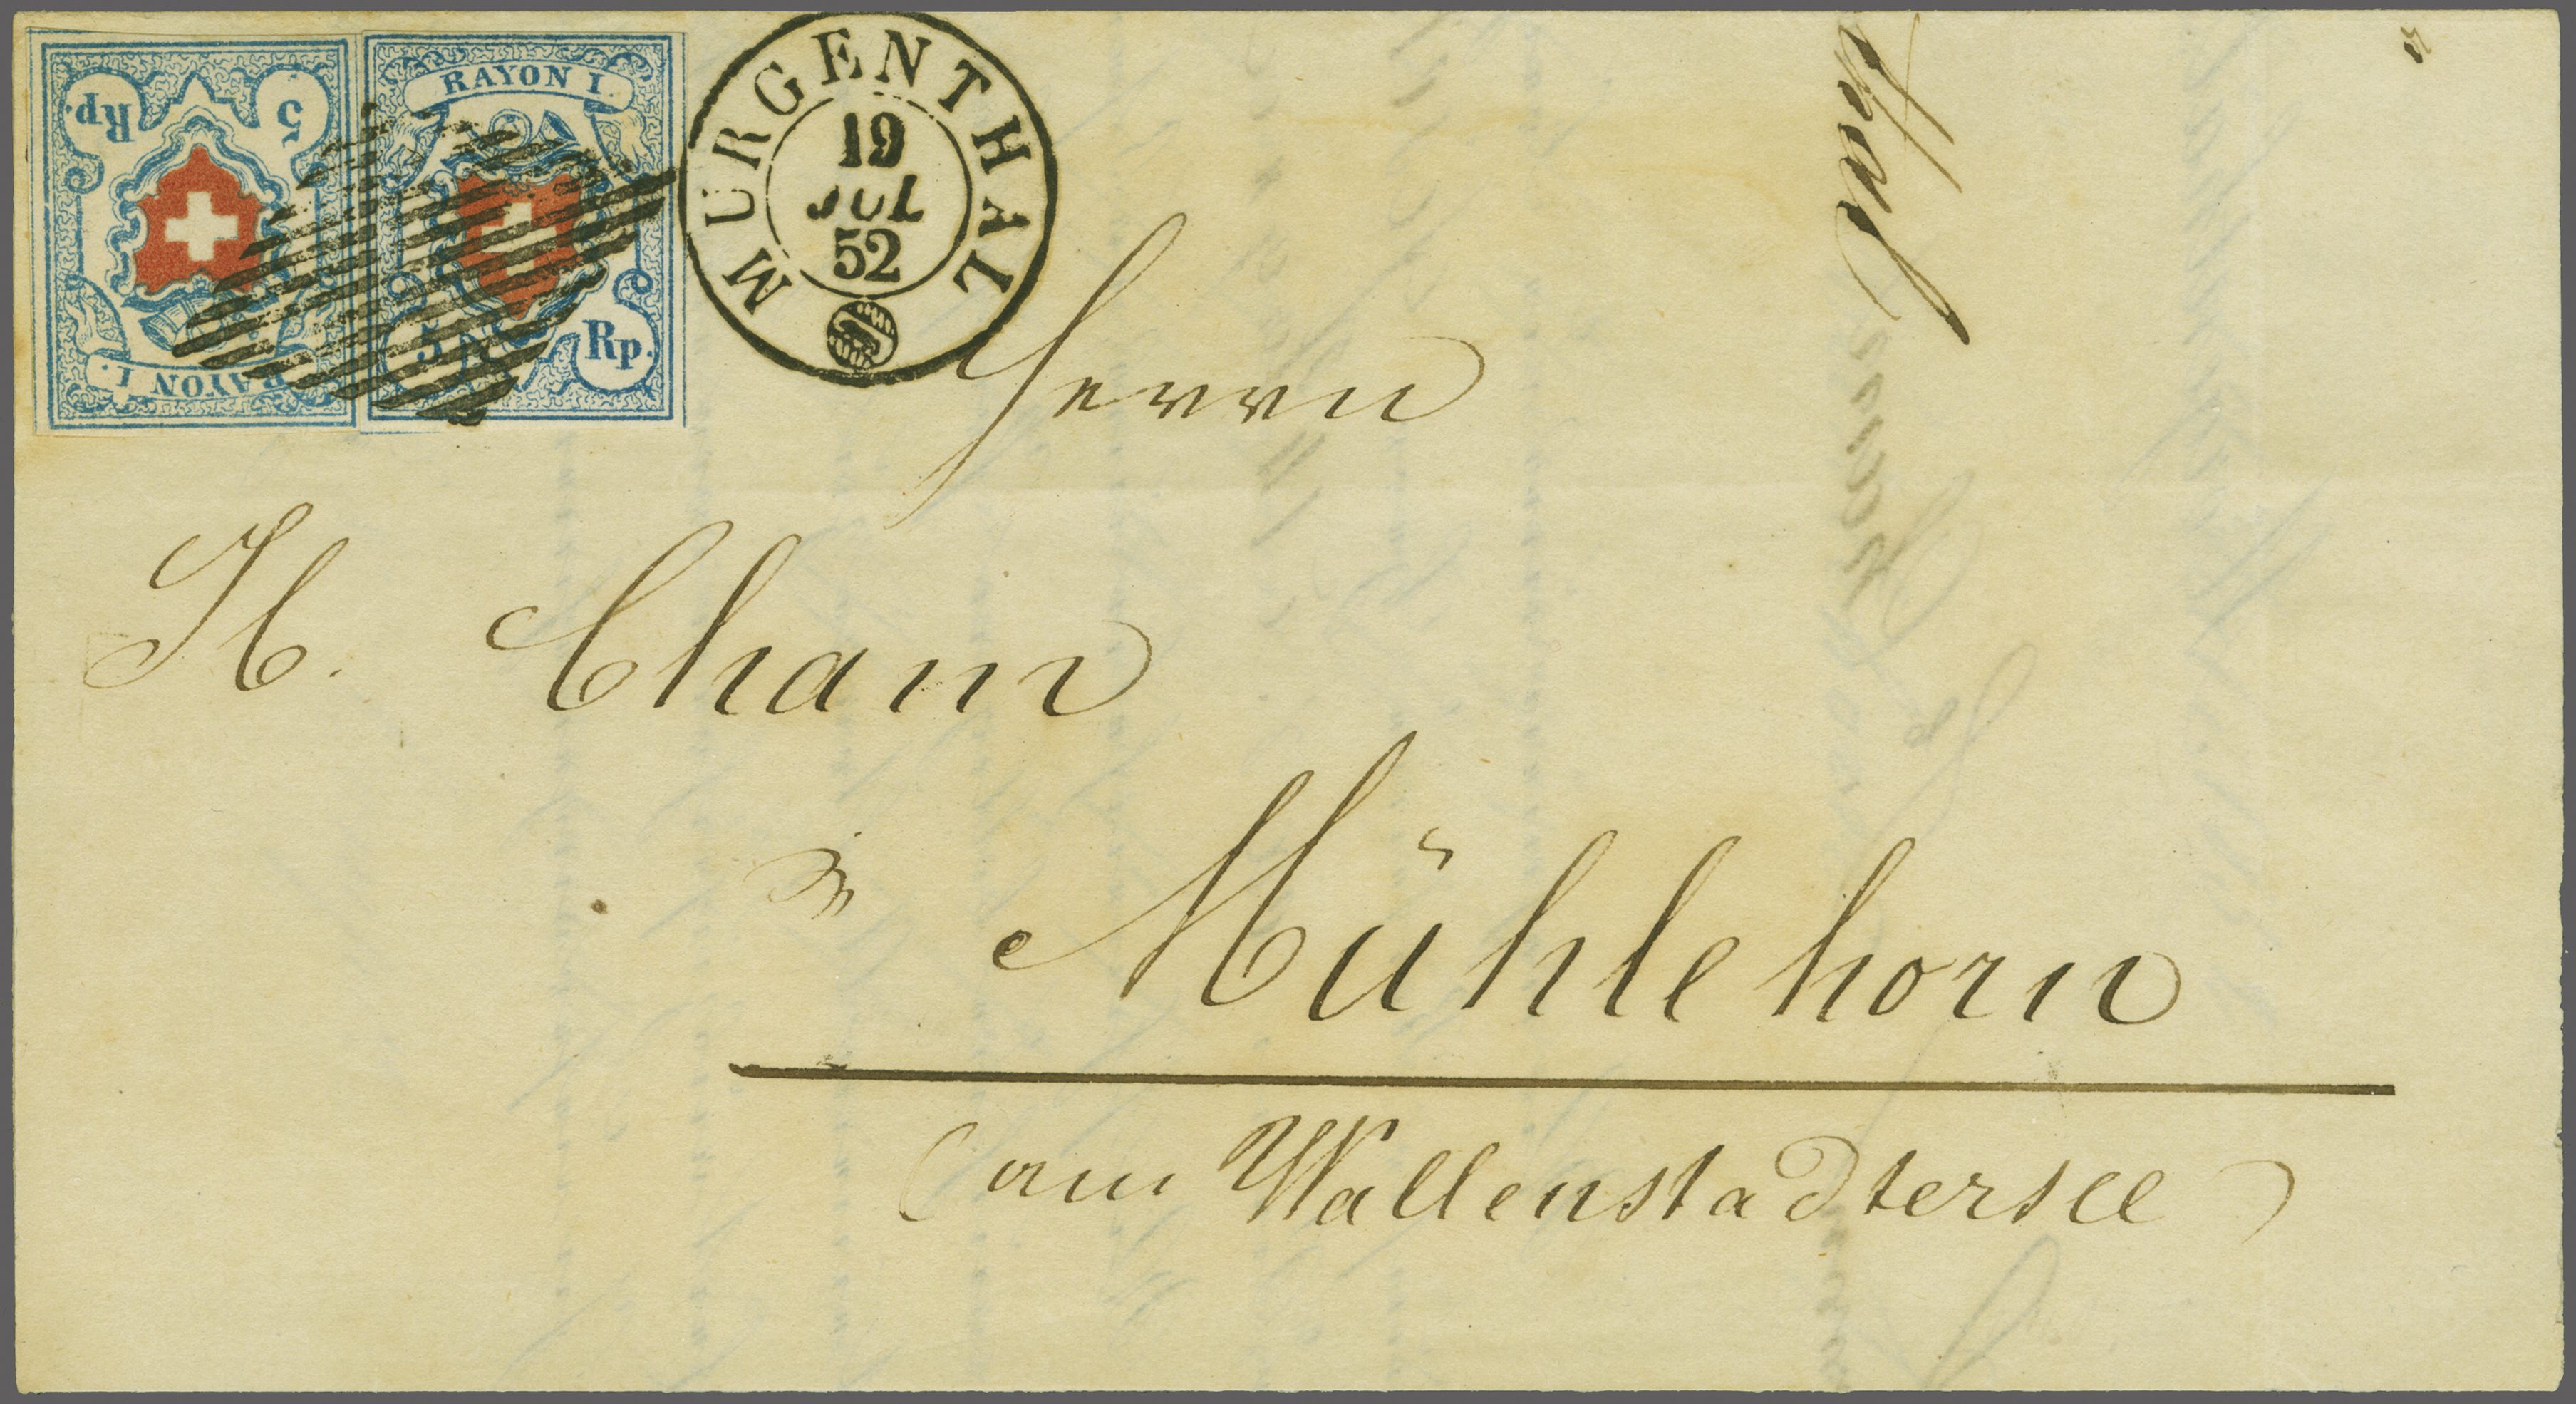 5 Rp.
RAYON I.
RAYON I.
5 Rp.
MURGENTHAL
19
JUL
52
Herrn
H. Cham
Mühlehorn
(am Wallenstadtersee)